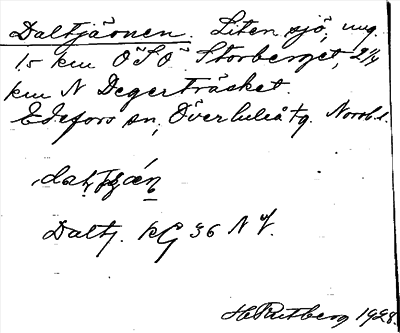 Daltjärnen. Liten sjö, ung.
1.5 km ÖSÖ Storberget, 2 1/4
km N Degerträsket.
Edefors sn, Överluleå tg. Norrb. l.
Daltj. KG 36 N V.
H. Rutberg 1928.